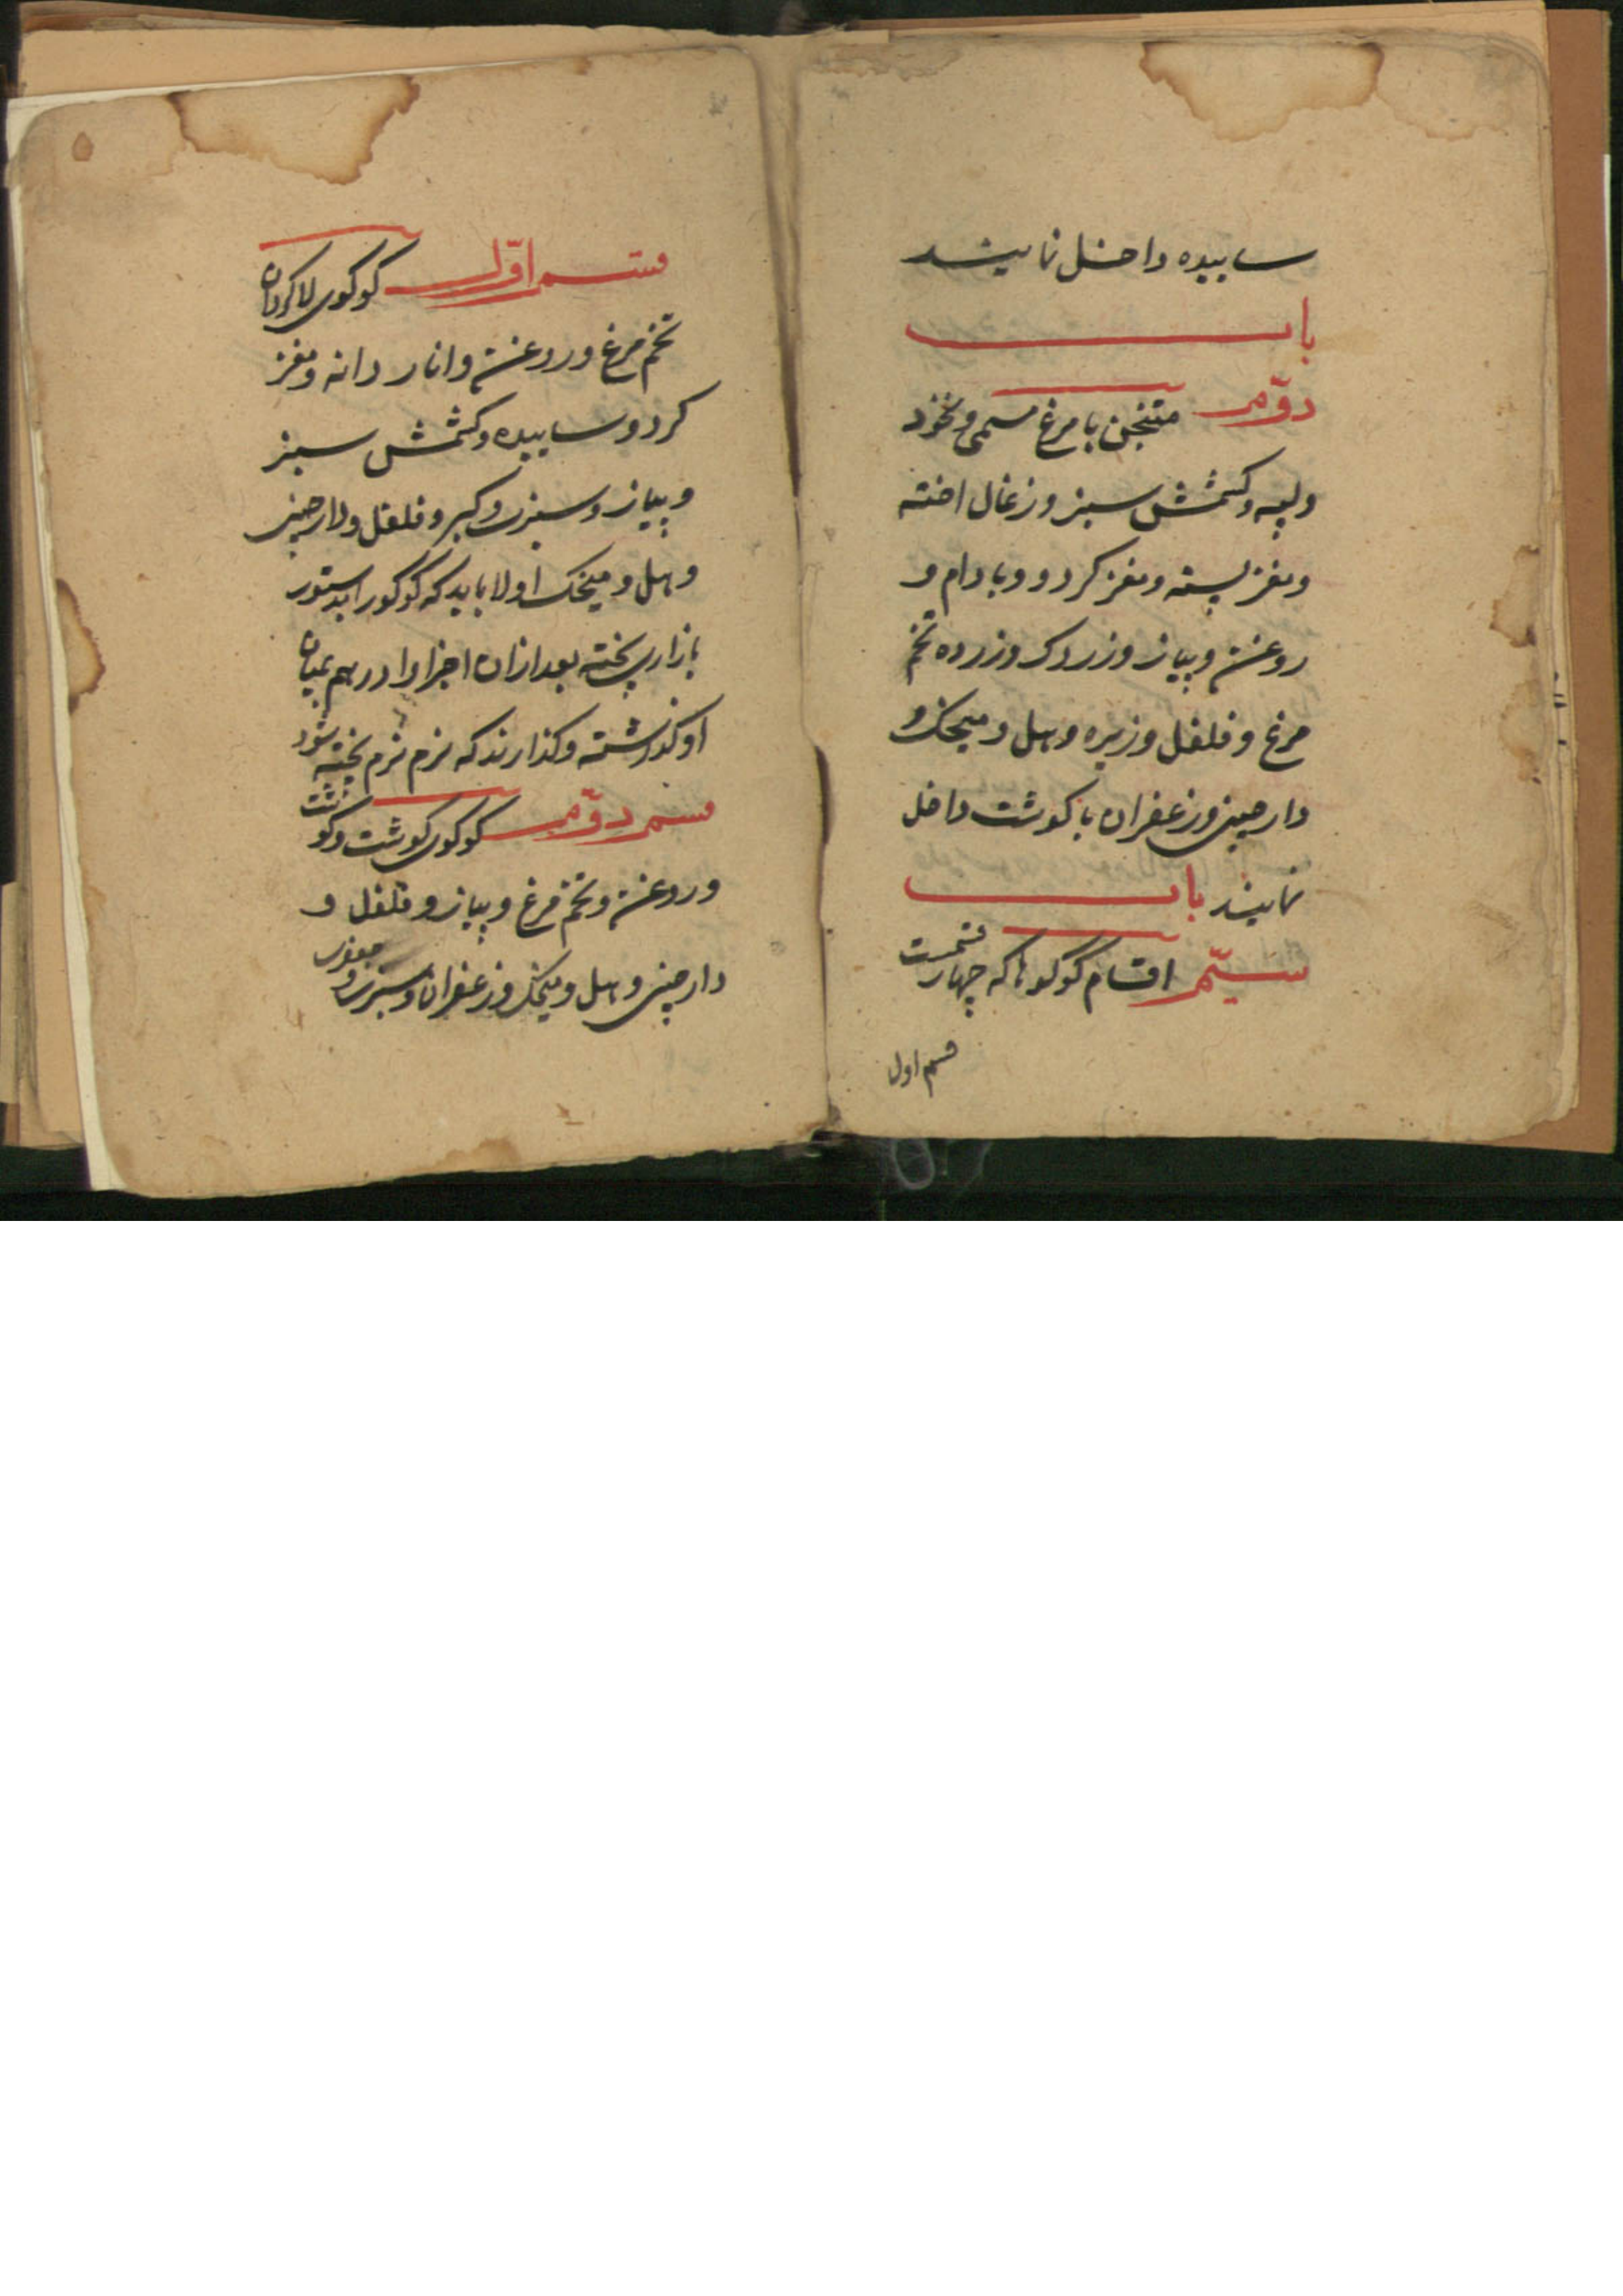 ساییده داخل نمایند
باب
دوّم متنجن با مرغ مسمی و نخود
ولپه و کشمش سبز و زغال اخته
و مغز پسته و مغز کردو و بادام و
روغن و پیاز و زردک و زرده تخم
مرغ و فلفل و زیره و هل و میخک و
دارچینی و زعفران با کوشت داخل
نمایند باب
سیّم اقسام کوکوها که چهار قسمست
قسم اول
قسم اوّل کوکوی
تخم مرغ و روغن و انار دانه و مغز
کردو ساییده و کشمش سبز
و پیاز و سبزی و کبر و فلفل و دارچینی
و هل و میخک اولا باید که کوکو را بدستور
بازاری پخته بعد ازان اجزا را درهم بمیان
او کذاشته و کذارند که نرم نرم پخته شود
قسم دوّم کوکوی کوشت و کوشت
و روغن و تخم مرغ و پیاز و فلفل و
دارچینی و هل و میخک و زعفران و سبزی و جعفری